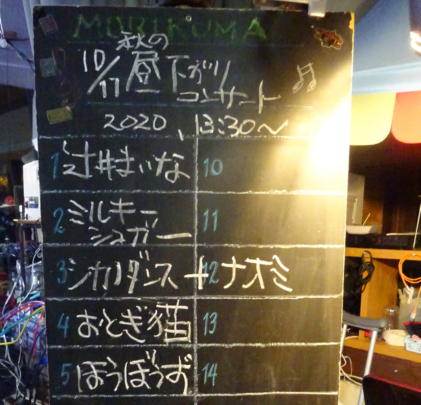 MORIKUMA
秋の
10/17 昼下がり
コンサート
2020, 13:30〜
1 辻井まいな
10
2 ミルキー
シュガー
11
3 シカダンス+ナオミ
12
4 おとぎ猫
13
5 ぼうぼうず
14